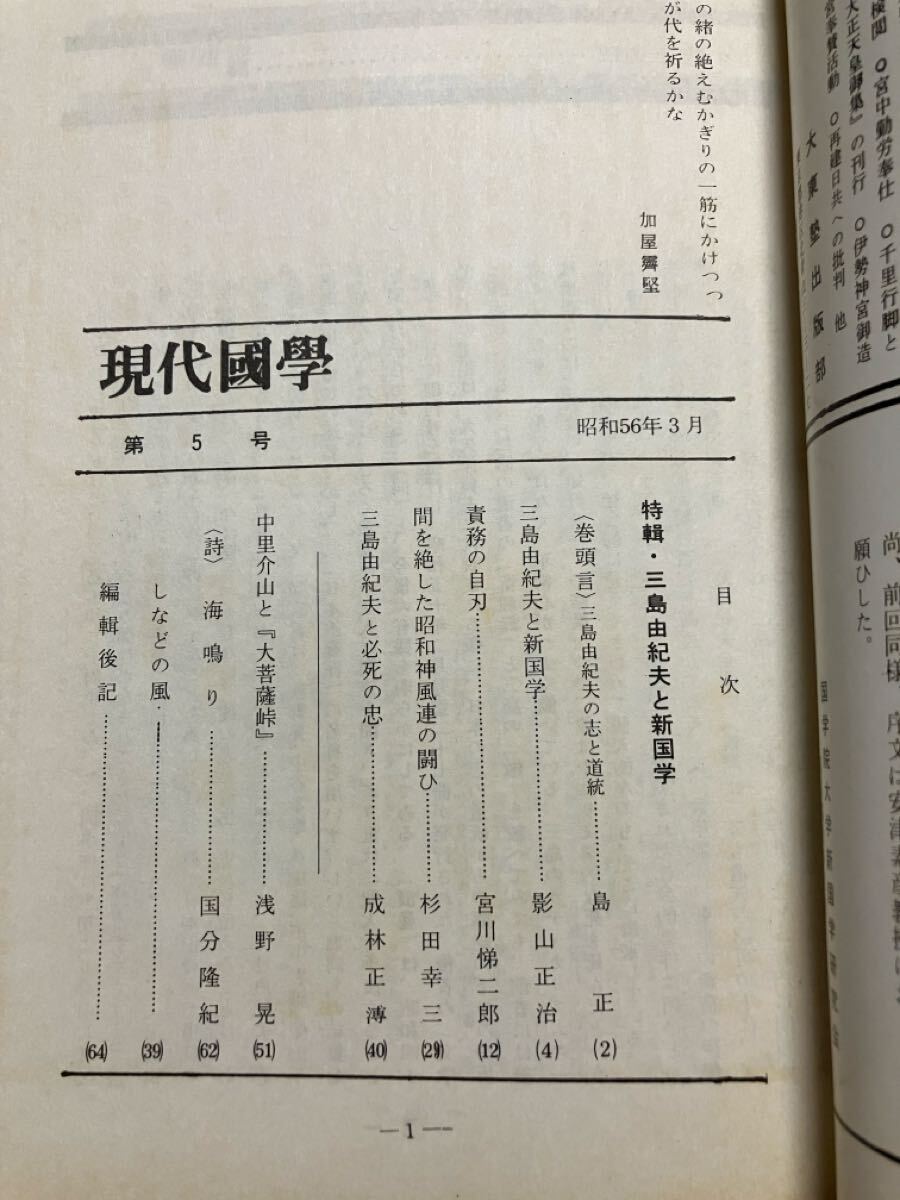 の緒の絶えむかぎりの一筋にかけつつ
が代を祈るかな
加屋霽堅
現代國學
第5号
昭和56年3月
目次
特輯・三島由紀夫と新国学
〈巻頭言〉三島由紀夫の志と道統……島正(2)
三島由紀夫と新国学……影山正治(4)
責務の自刃……宮川悌二郎(12)
間を絶した昭和神風連の闘ひ……杉田幸三(29)
三島由紀夫と必死の忠……成林正溥(40)
中里介山と『大菩薩峠』……浅野晃(51)
〈詩〉海鳴り……国分隆紀(62)
しなどの風……(39)
編輯後記……(64)
—1—
検閲 ○宮中勤労奉仕 ○千里行脚と
大正天皇御集』の刊行 ○伊勢神宮御造
宮奉賛活動 ○再建日共への批判 他
大東塾出版部
尚、前回同様、序文は安津素彦教授に
願ひした。
国学院大学新国学研究会